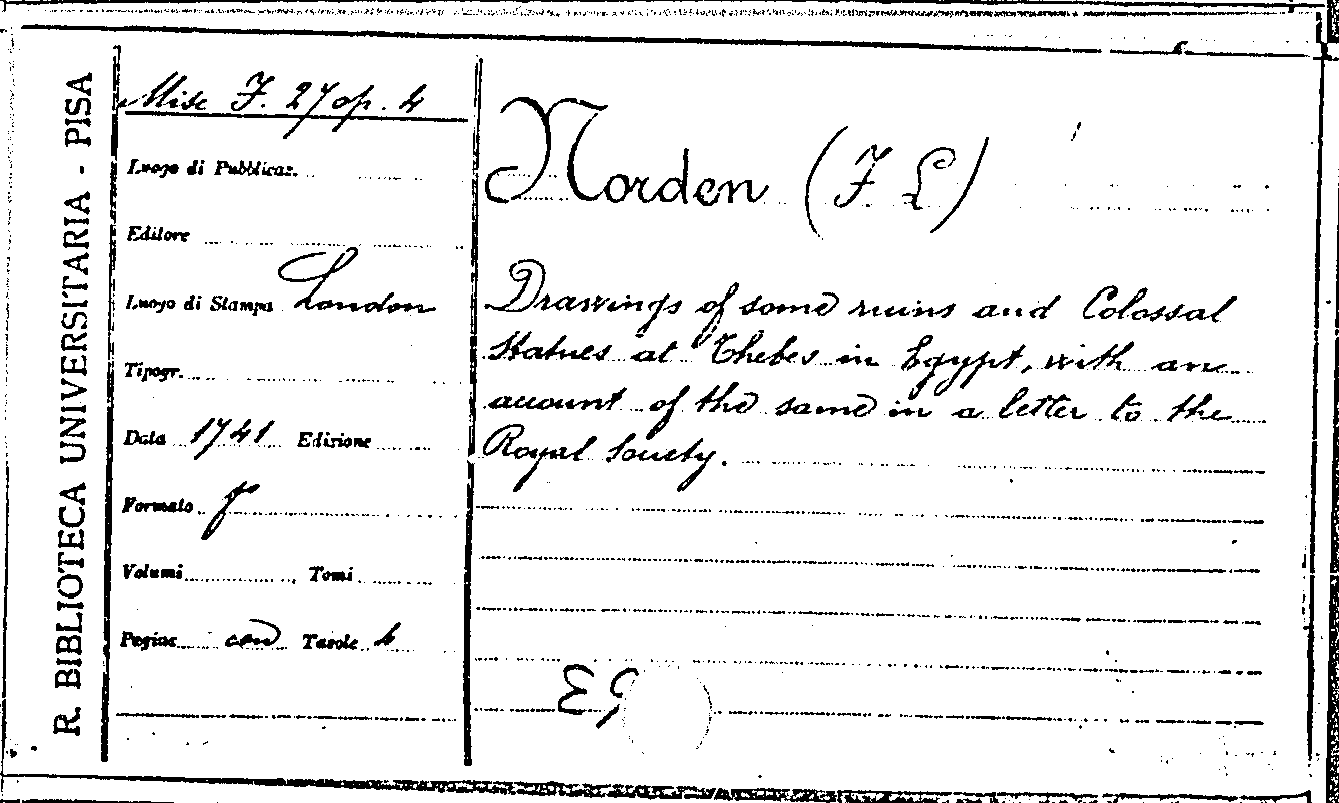 R. BIBLIOTECA UNIVERSITARIA - PISA
Misc F. 27 op. 4
Luogo di Pubblicaz.
Editore
Luogo di Stampa London
Tipogr.
Data 1741 Edizione
Formato f°
Volumi Tomi
Pagine con Tavole 4
Norden (F L)
Drawings of some ruins and Colossal
Statues at Thebes in Egypt, with an
account of the same in a letter to the
Royal Society.